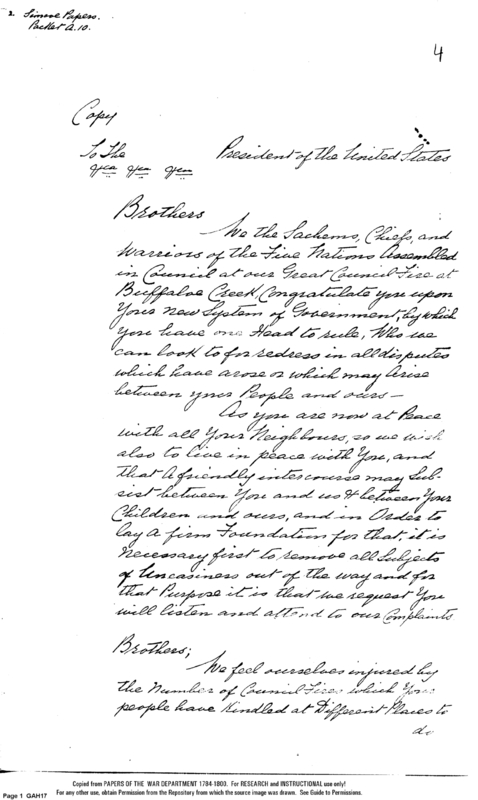 1. Simcoe Papers.
Packet A.10.
4
Copy
To The President of the United States
Brothers
We the Sachems, Chiefs, and
Warriors of the Five Nations Assembled
in Council at our Great Council Fire at
Buffaloe Creek, Congratulate you upon
Your New System of Government, by which
you have one Head to rule, Who we
can look to for redress in all disputes
which have arose or which may Arise
between your People and ours —
As you are now at Peace
with all Your Neighbours, so we wish
also to live in peace with You, and
that A friendly intercourse may Sub-
sist between You and us & between Your
Children and ours, and in Order to
lay A firm Foundation for that, it is
Necessary first to remove all Subjects
of Uneasiness out of the way and for
that Purpose it is that we request You
will listen and attend to our Complaints
Brothers;
We feel ourselves injured by
the Number of Council Fires which Your
people have Kindled at Different Places to
do
Copied from PAPERS OF THE WAR DEPARTMENT 1784-1800. For RESEARCH and INSTRUCTIONAL use only!
Page 1 GAH17 For any other use, obtain Permission from the Repository from which the source image was drawn. See Guide to Permissions.